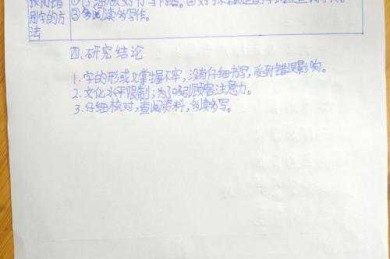 用字的方
法
②多阅读书写作。
四、研究结论
1.字的形或义掌握不牢,没有仔细书写,受到错误影响。
2.文化水平限制;为了吸引顾客注意力。
3.仔细核对,查阅资料,多读多写。